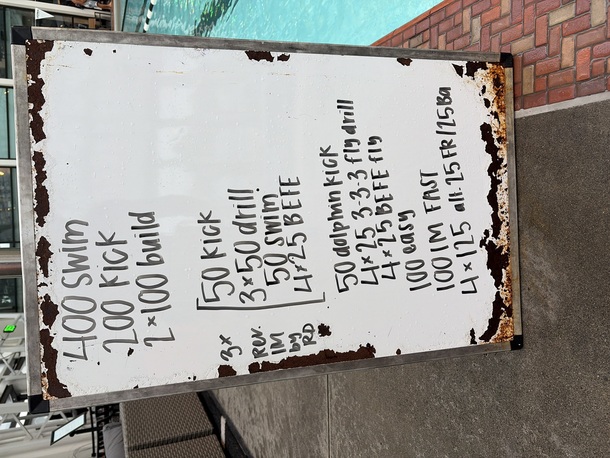 400 swim
200 kick
2x100 build
3x
Rev.
IM
by
RD
50 kick
3x50 drill
50 swim
4x25 BEFE
50 dolphin kick
4x25 3-3-3 fly drill
4x25 BEFE fly
100 easy
100 IM FAST
4x125 alt. 25FR/25Ba